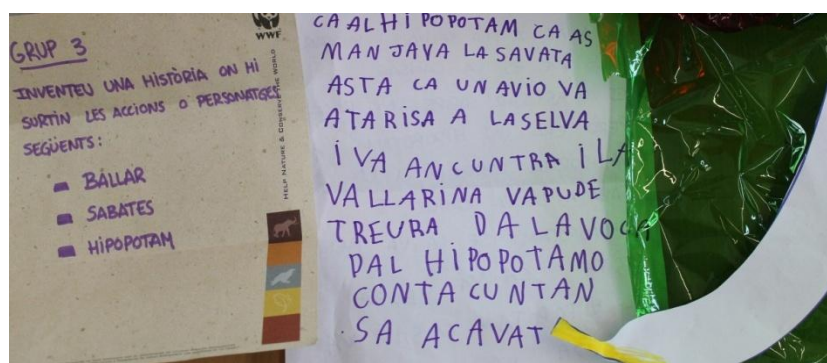 GRUP 3
INVENTEU UNA HISTÒRIA ON HI
SURTIN LES ACCIONS O PERSONATGES
SEGÜENTS:
BALLAR
SABATES
HIPOPOTAM
WWF
HELP NATURE & CONSERVE THE WORLD
CA AL HIPOPOTAM CA AS
MANJAVA LA SAVATA
ASTA CA UN AVIO VA
ATARISA A LASELVA
I VA ANCUNTRA I LA
VALLARINA VAPUDE
TREURA DALAVOCA
DAL HIPOPOTAMO
CONTA CUNTAN
SA ACAVAT